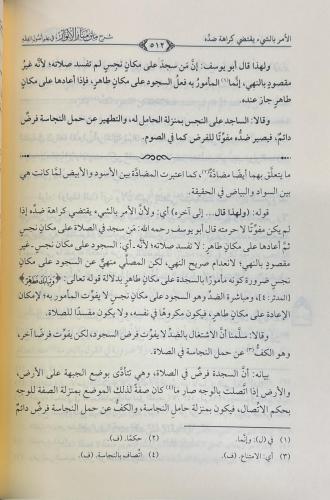 الأمر بالشيء يقتضي كراهة ضدِّه
٥١٢
شرح متن منار الأنوار في علم أصول الفقه
ولهذا قال أبو يوسف: إنَّ مَن سجدَ على مكانٍ نجسٍ لم تفسد صلاته؛ لأنَّه غيرُ
مقصودٍ بالنهي، إنَّما(١) المأمورُ به فعلُ السجود على مكانٍ طاهرٍ، فإذا أعادها على مكانٍ
طاهرٍ جازَ عنده.
وقالا: الساجد على النجس بمنزلة الحامل له، والتطهير عن حمل النجاسة فرضٌ
دائمٌ، فيصير ضده مفوِّتًا للفرض كما في الصوم.
ما يتعلَّق بهما أيضًا مضادَّةٌ(٢)، كما اعتبرت المضادَّة بين الأسود والأبيض لمَّا كانت هي
بين السواد والبياض في الحقيقة.
قوله: (ولهذا قال... إلى آخره) أي: ولأنَّ الأمر بالشيء يقتضي كراهة ضدِّه إذا
لم يكن مفوِّتًا لا حرمته قال أبو يوسف رحمه الله: مَن سجدَ في الصلاة على مكانٍ نجسٍ
ثمَّ أعادها على مكانٍ طاهرٍ: لا تفسد صلاته؛ لأنَّه ـ أي: السجود على مكانٍ نجسٍ ـ غير
مقصودٍ بالنهي؛ لانعدام صريح النهي، لكن المصلِّي منهيٌّ عن السجود على مكانٍ
نجسٍ ضرورة كونه مأمورًا بالسجدة على مكانٍ طاهرٍ بدلالة قوله تعالى: ﴿وَثِيَابَكَ فَطَهِّرْ﴾
(المدثر: ٤)، ومباشرة الضدِّ وهو السجود على مكانٍ نجسٍ لا يفوِّت المأمور به؛ لإمكان
الإعادة على مكانٍ طاهرٍ، فيكون مكروهًا في نفسه، ولا يكون مفسدًا للصلاة.
وقالا: سلَّمنا أنَّ الاشتغال بالضدِّ لا يفوِّت فرض السجود، لكن يفوِّت فرضًا آخر،
وهو الكفُّ(٣) عن حمل النجاسة في الصلاة.
بيانه: أنَّ السجدة فرضٌ في الصلاة، وهي تتأدَّى بوضع الجبهة على الأرض،
والأرض إذا اتَّصلت بالوجه صار ما(٤) كان صفةً لذلك الموضع بمنزلة الصفة للوجه
بحكم الاتِّصال، فيكون بمنزلة حامل النجاسة، والكفُّ عن حمل النجاسة فرضٌ دائمٌ
(١) في (ل): وإنَّما.
(٢) حكمًا. (ف).
(٣) أي: الامتناع. (ف).
(٤) اتِّصاف بالنجاسة. (ف).